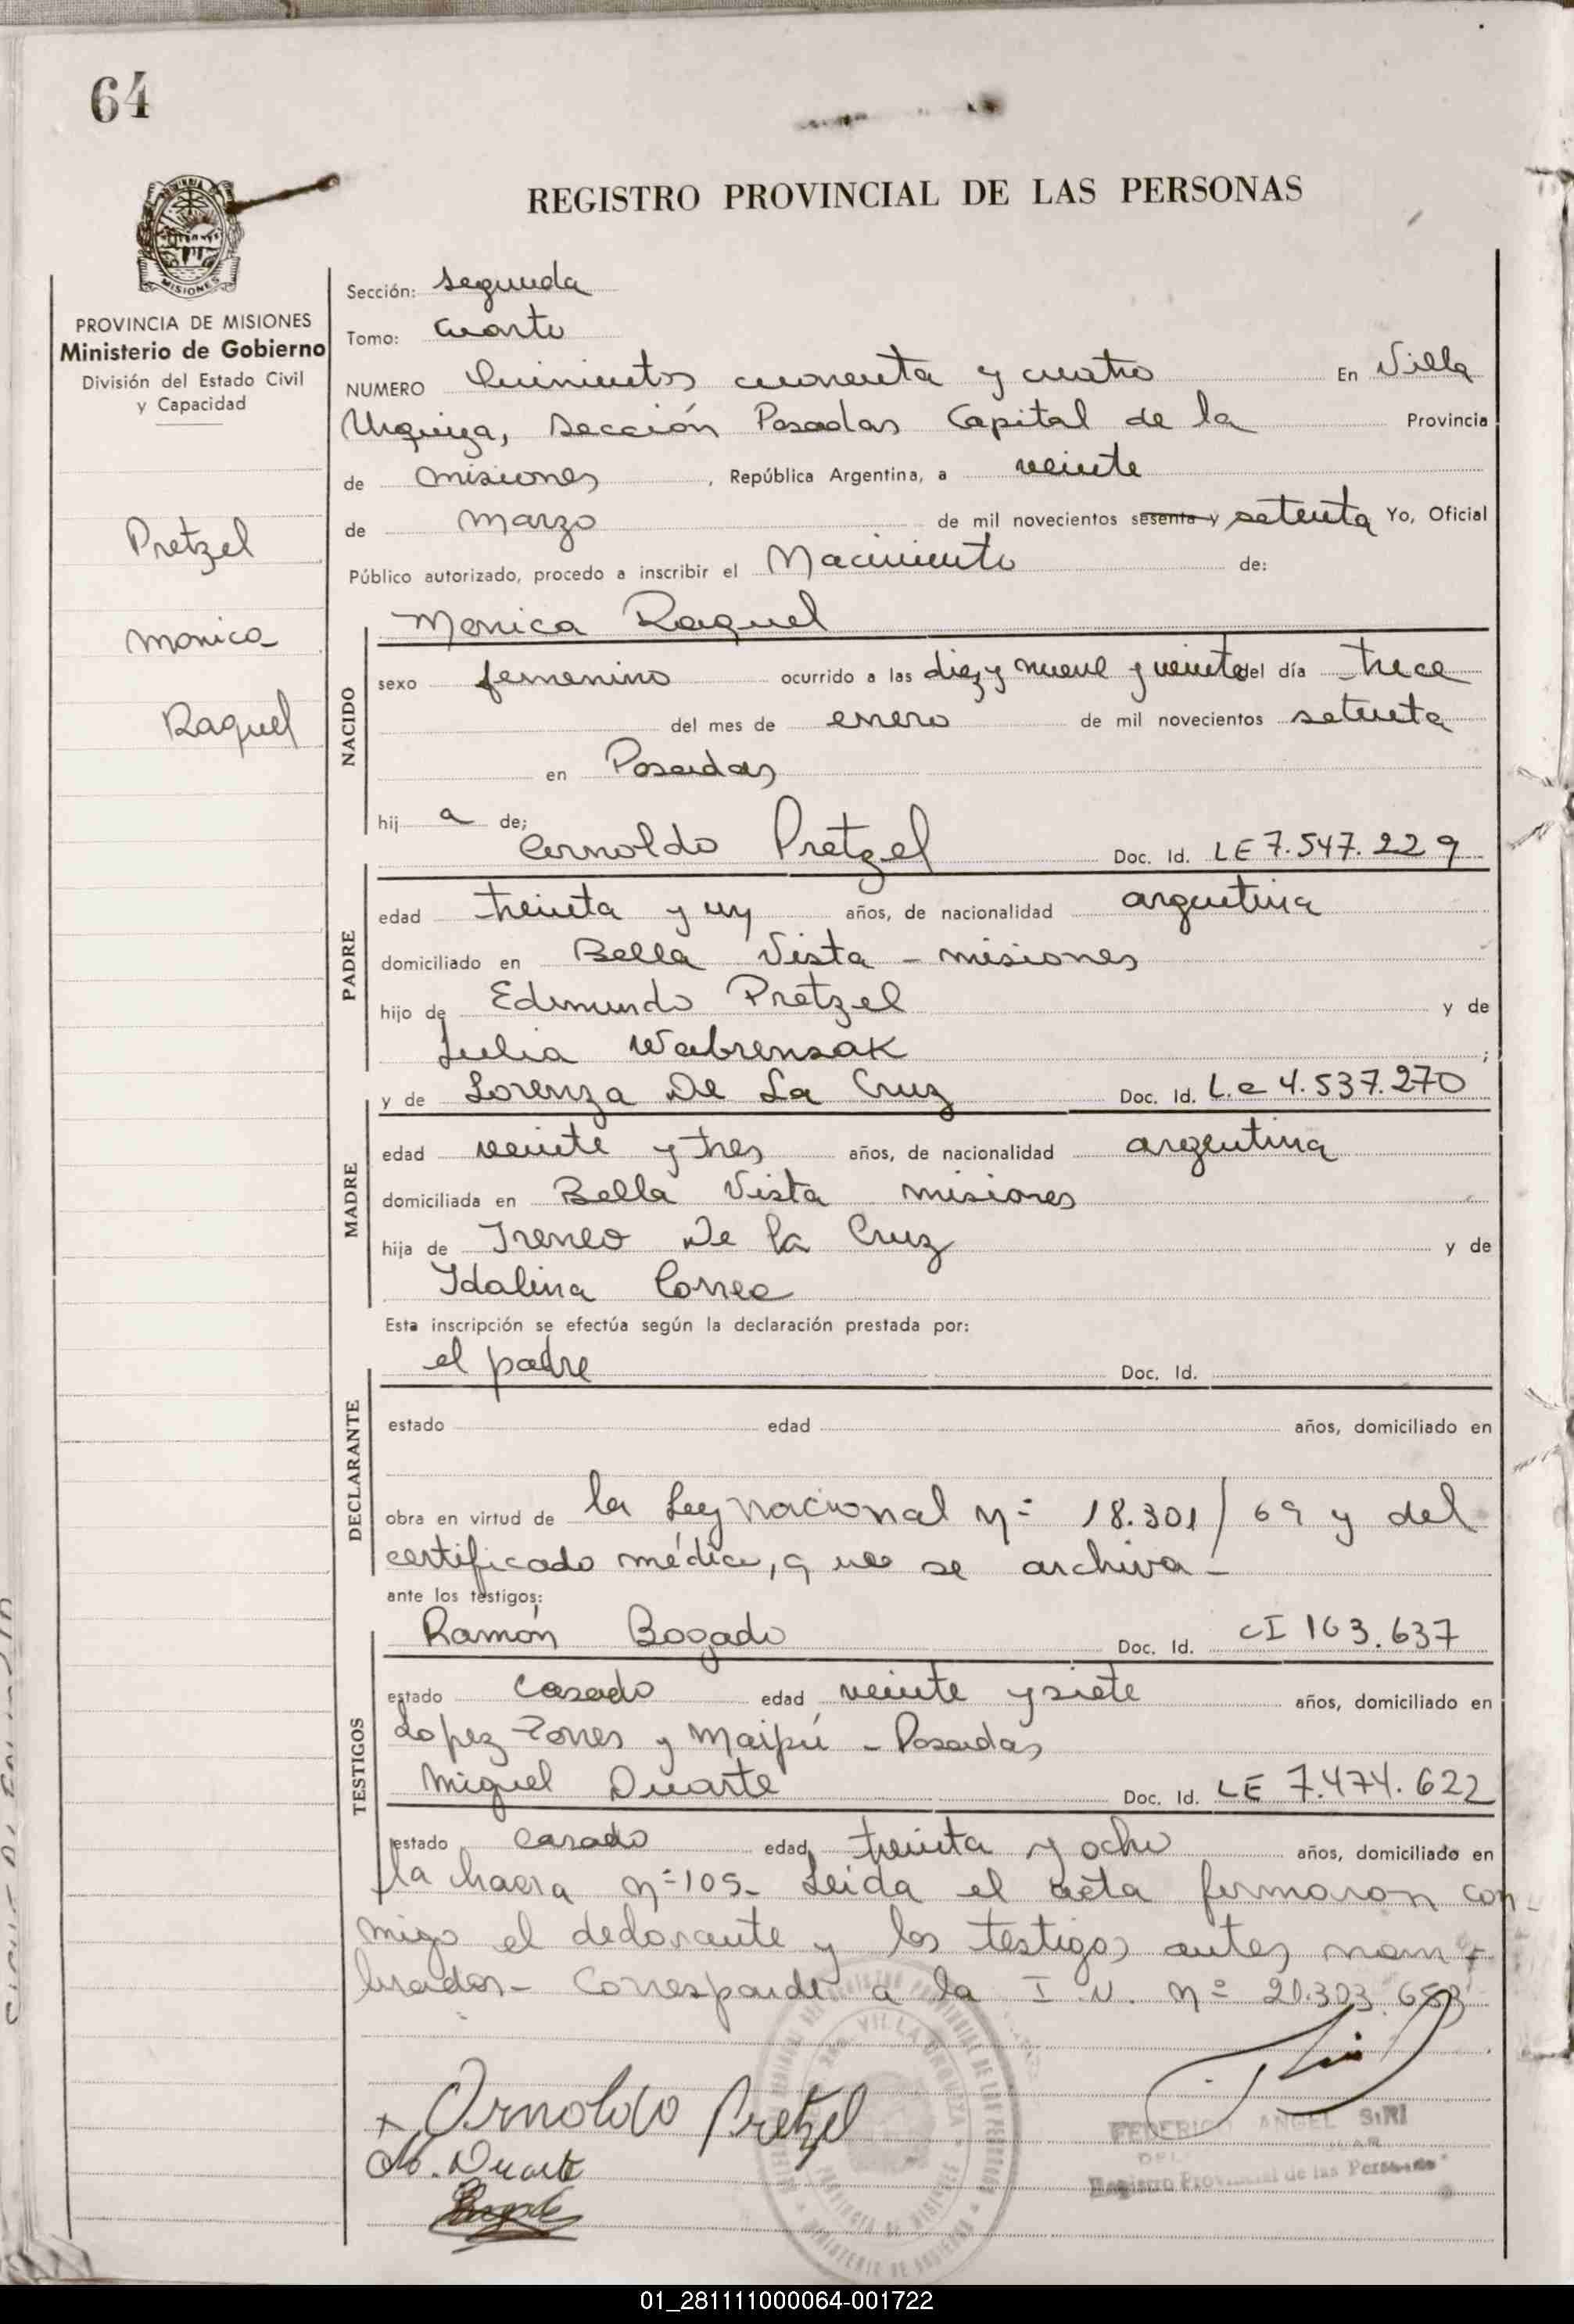 64
REGISTRO PROVINCIAL DE LAS PERSONAS
MISIONES
PROVINCIA DE MISIONES
Ministerio de Gobierno
División del Estado Civil
y Capacidad
Pretzel
Monica
Raquel
Sección: segunda
Tomo: cuarto
NUMERO Quinientos cuarenta y cuatro En Villa
Urquiza, Sección Posadas Capital de la Provincia
de Misiones, República Argentina, a veinte
de Marzo de mil novecientos sesenta y setenta Yo, Oficial
Público autorizado, procedo a inscribir el Nacimiento de:
NACIDO
Monica Raquel
sexo femenino ocurrido a las diez y nueve y veinte del día trece
del mes de enero de mil novecientos setenta
en Posadas
hij a de;
PADRE
Arnoldo Pretzel Doc. Id. LE 7.547.229
edad treinta y un años, de nacionalidad argentina
domiciliado en Bella Vista - misiones
hijo de Edmundo Pretzel y de
Julia Wabrensak ;
MADRE
y de Lorenza De La Cruz Doc. Id. L.c 4.537.270
edad veinte y tres años, de nacionalidad argentina
domiciliada en Bella Vista misiones
hija de Ireneo De la Cruz y de
Idalina Correa
Esta inscripción se efectúa según la declaración prestada por:
DECLARANTE
el padre Doc. Id.
estado edad años, domiciliado en
obra en virtud de la Ley nacional nº 18.301/69 y del
certificado médico, que se archiva-
ante los testigos:
TESTIGOS
Ramón Bogado Doc. Id. CI 163.637
estado casado edad veinte y siete años, domiciliado en
Lopez Torres y Maipú - Posadas
Miguel Duarte Doc. Id. LE 7.474.622
estado casado edad treinta y ocho años, domiciliado en
la chacra nº 105- Leida el acta firmaron con-
migo el declarante y los testigos antes nom-
brados- Corresponde a la I.N. nº 21.303.653
Arnoldo Pretzel
M. Duarte
Bogado
VILLA URQUIZA
PROVINCIA DE MISIONES
MINISTERIO DE GOBIERNO
FEDERICO ANGEL SIRI
Registro Provincial de las Personas
01_281111000064-001722